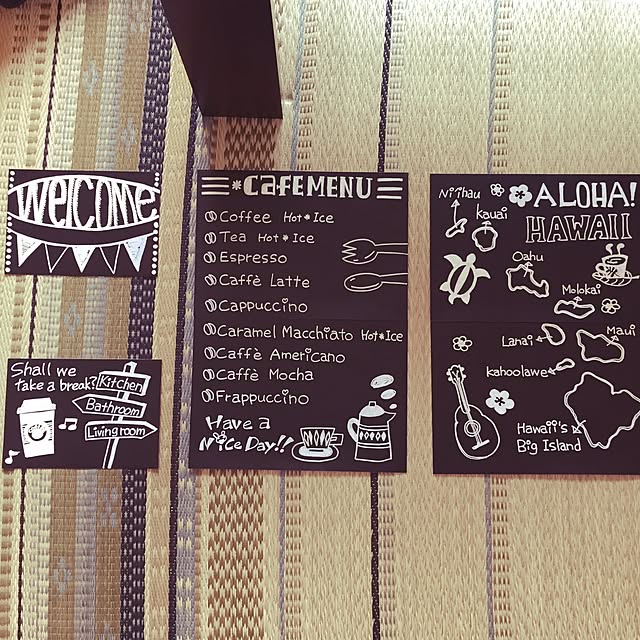 WELCOME
Shall we
take a break?
Kitchen
Bathroom
Living room
*CAFE MENU
Coffee Hot*Ice
Tea Hot*Ice
Espresso
Caffè Latte
Cappuccino
Caramel Macchiato Hot*Ice
Caffè Americano
Caffè Mocha
Frappuccino
Have a
Nice Day!!
ALOHA!
HAWAII
Ni'ihau
Kauai
Oahu
Molokai
Lanai
Maui
kahoolawe
Hawaii's
Big Island